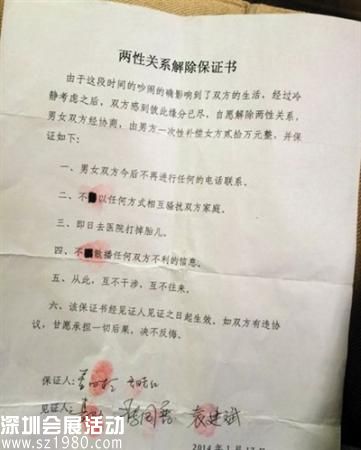 两性关系解除保证书
由于这段时间的吵闹的确影响到了双方的生活，经过冷
静考虑之后，双方感到彼此缘分已尽，自愿解除两性关系，
男女双方经协商，由男方一次性补偿女方贰拾万元整，并保
证如下：
一、男女双方今后不再进行任何的电话联系。
二、不以任何方式相互骚扰双方家庭。
三、即日去医院打掉胎儿。
四、不散播任何双方不利的信息。
五、从此，互不干涉，互不往来。
六、该保证书经见证人见证之日起生效。如双方有违协
议，甘愿承担一切后果，决不反悔。
保证人：
见证人： 袁建斌
2014 年 1 月 17 日
深圳会展活动
www.sz1980.com